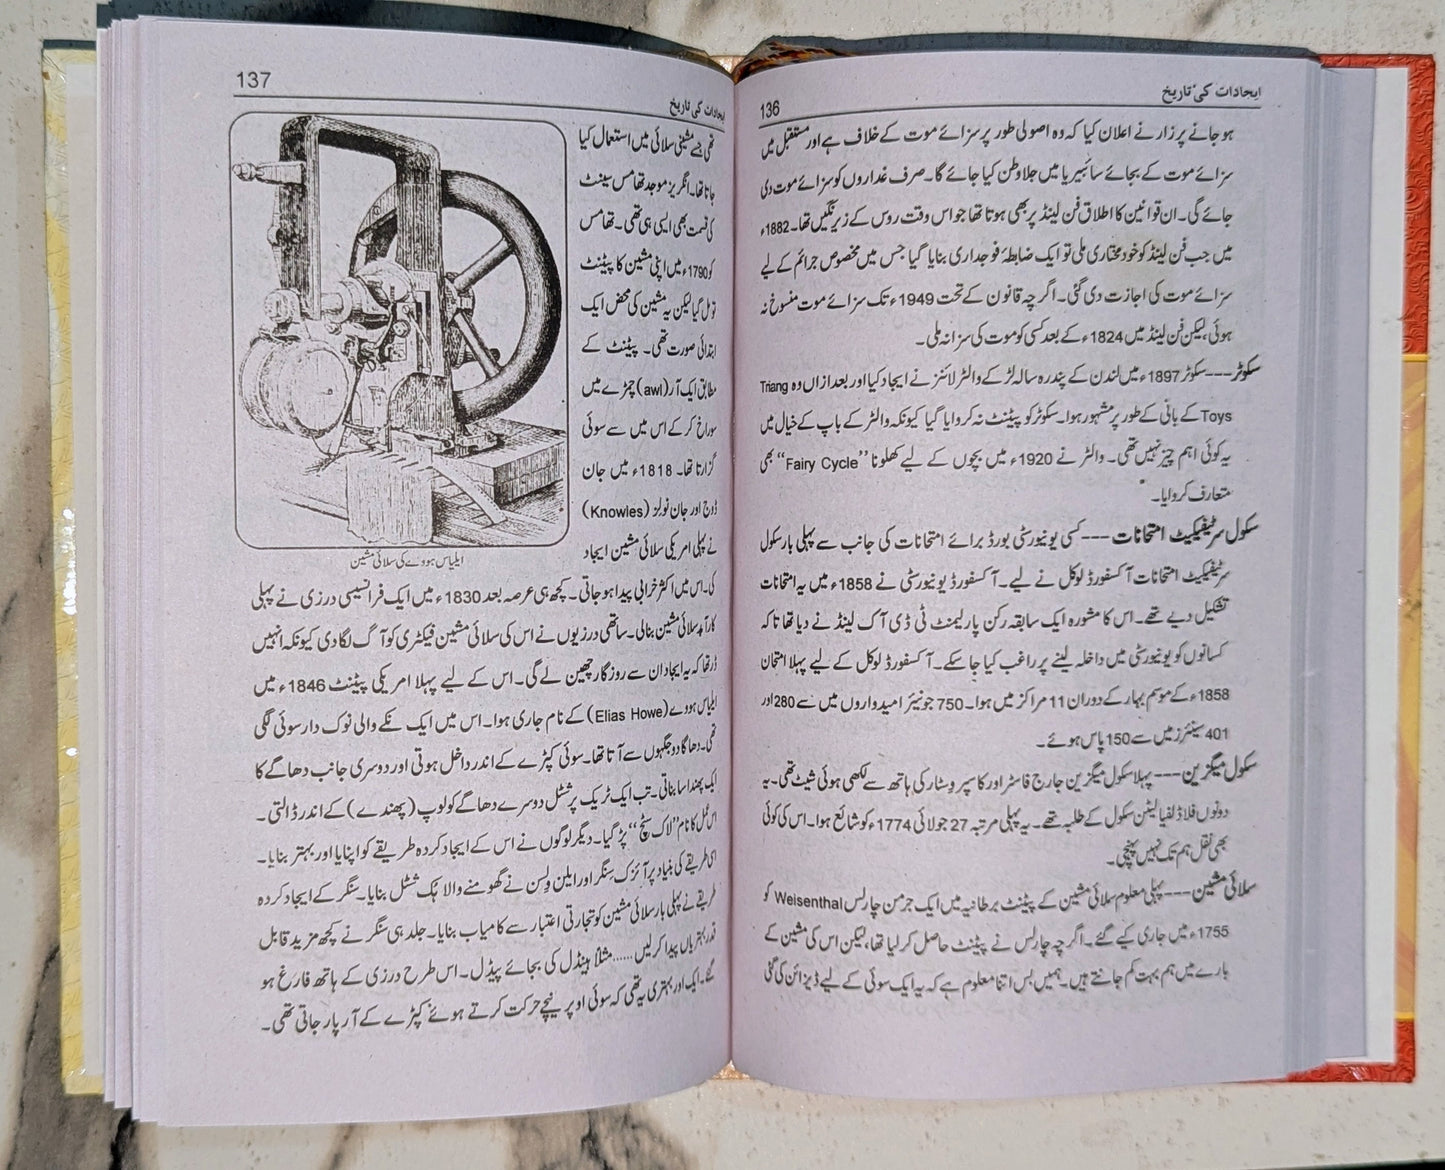 ایجادات کی تاریخ
136
ہو جانے پر زار نے اعلان کیا کہ وہ اصولی طور پر سزائے موت کے خلاف ہے اور مستقبل میں
سزائے موت کے بجائے سائبیریا میں جلاوطن کیا جائے گا۔ صرف غداروں کو سزائے موت دی
جائے گی۔ ان قوانین کا اطلاق فن لینڈ پر بھی ہوتا تھا جو اس وقت روس کے زیرنگیں تھا۔ 1882ء
میں جب فن لینڈ کو خودمختاری ملی تو ایک ضابطۂ فوجداری بنایا گیا جس میں مخصوص جرائم کے لیے
سزائے موت کی اجازت دی گئی۔ اگرچہ قانون کے تحت 1949ء تک سزائے موت منسوخ نہ
ہوئی، لیکن فن لینڈ میں 1824ء کے بعد کسی کو موت کی سزا نہ ملی۔
سکوٹر---سکوٹر 1897ء میں لندن کے پندرہ سالہ لڑکے والٹر لائنز نے ایجاد کیا اور بعدازاں وہ Triang
Toys کے بانی کے طور پر مشہور ہوا۔ سکوٹر کو پیٹنٹ نہ کروایا گیا کیونکہ والٹر کے باپ کے خیال میں
یہ کوئی اہم چیز نہیں تھی۔ والٹر نے 1920ء میں بچوں کے لیے کھلونا ''Fairy Cycle'' بھی
متعارف کروایا۔
سکول سرٹیفکیٹ امتحانات---کسی یونیورسٹی بورڈ برائے امتحانات کی جانب سے پہلی بار سکول
سرٹیفکیٹ امتحانات آکسفورڈ لوکل نے لیے۔ آکسفورڈ یونیورسٹی نے 1858ء میں یہ امتحانات
تشکیل دیے تھے۔ اس کا مشورہ ایک سابقہ رکن پارلیمنٹ ٹی ڈی آک لینڈ نے دیا تھا تاکہ
کسانوں کو یونیورسٹی میں داخلہ لینے پر راغب کیا جا سکے۔ آکسفورڈ لوکل کے لیے پہلا امتحان
1858ء کے موسم بہار کے دوران 11 مراکز میں ہوا۔ 750 جونیئر امیدواروں میں سے 280 اور
401 سینئرز میں سے 150 پاس ہوئے۔
سکول میگزین---پہلا سکول میگزین جارج فاسٹر اور کاسپر وسٹار کی ہاتھ سے لکھی ہوئی شیٹ تھی۔ یہ
دونوں فلاڈلفیا لیٹن سکول کے طلبہ تھے۔ یہ پہلی مرتبہ 27 جولائی 1774ء کو شائع ہوا۔ اس کی کوئی
بھی نقل ہم تک نہیں پہنچی۔
سلائی مشین---پہلی معلوم سلائی مشین کے پیٹنٹ برطانیہ میں ایک جرمن چارلس Weisenthal کو
1755ء میں جاری کیے گئے۔ اگرچہ چارلس نے پیٹنٹ حاصل کر لیا تھا، لیکن اس کی مشین کے
بارے میں ہم بہت کم جانتے ہیں۔ ہمیں بس اتنا معلوم ہے کہ یہ ایک سوئی کے لیے ڈیزائن کی گئی
ایجادات کی تاریخ
137
تھی جسے مشینی سلائی میں استعمال کیا
جاتا تھا۔ انگریز موجد تھامس سینٹ
کی قسمت بھی ایسی ہی تھی۔ تھامس
کو 1790ء میں اپنی مشین کا پیٹنٹ
تو مل گیا لیکن یہ مشین کی محض ایک
ابتدائی صورت تھی۔ پیٹنٹ کے
مطابق ایک آر (awl) چمڑے میں
سوراخ کر کے اس میں سے سوئی
گزارتا تھا۔ 1818ء میں جان
ڈوج اور جان نولز (Knowles)
نے پہلی امریکی سلائی مشین ایجاد
ایلیاس ہووے کی سلائی مشین
کی۔ اس میں اکثر خرابی پیدا ہو جاتی۔ کچھ ہی عرصہ بعد 1830ء میں ایک فرانسیسی درزی نے پہلی
کارآمد سلائی مشین بنا لی۔ ساتھی درزیوں نے اس کی سلائی مشین فیکٹری کو آگ لگا دی کیونکہ انہیں
ڈر تھا کہ یہ ایجاد ان سے روزگار چھین لے گی۔ اس کے لیے پہلا امریکی پیٹنٹ 1846ء میں
ایلیاس ہووے (Elias Howe) کے نام جاری ہوا۔ اس میں ایک نکے والی نوک دار سوئی لگی
تھی۔ دھاگا دو جگہوں سے آتا تھا۔ سوئی کپڑے کے اندر داخل ہوتی اور دوسری جانب دھاگے کا
ایک پھندا سا بناتی۔ تب ایک ٹریک پر شٹل دوسرے دھاگے کو لوپ (پھندے) کے اندر ڈالتی۔
اس عمل کا نام ''لاک سٹچ'' پڑ گیا۔ دیگر لوگوں نے اس کے ایجاد کردہ طریقے کو اپنایا اور بہتر بنایا۔
اسی طریقے کی بنیاد پر آئزک سنگر اور ایلن ولسن نے گھومنے والا ہک شٹل بنایا۔ سنگر کے ایجاد کردہ
طریقے نے پہلی بار سلائی مشین کو تجارتی اعتبار سے کامیاب بنایا۔ جلد ہی سنگر نے کچھ مزید قابل
قدر بہتریاں پیدا کر لیں......مثلاً ہینڈل کی بجائے پیڈل۔ اس طرح درزی کے ہاتھ فارغ ہو
گئے۔ ایک اور بہتری یہ تھی کہ سوئی اوپر نیچے حرکت کرتے ہوئے کپڑے کے آر پار جاتی تھی۔